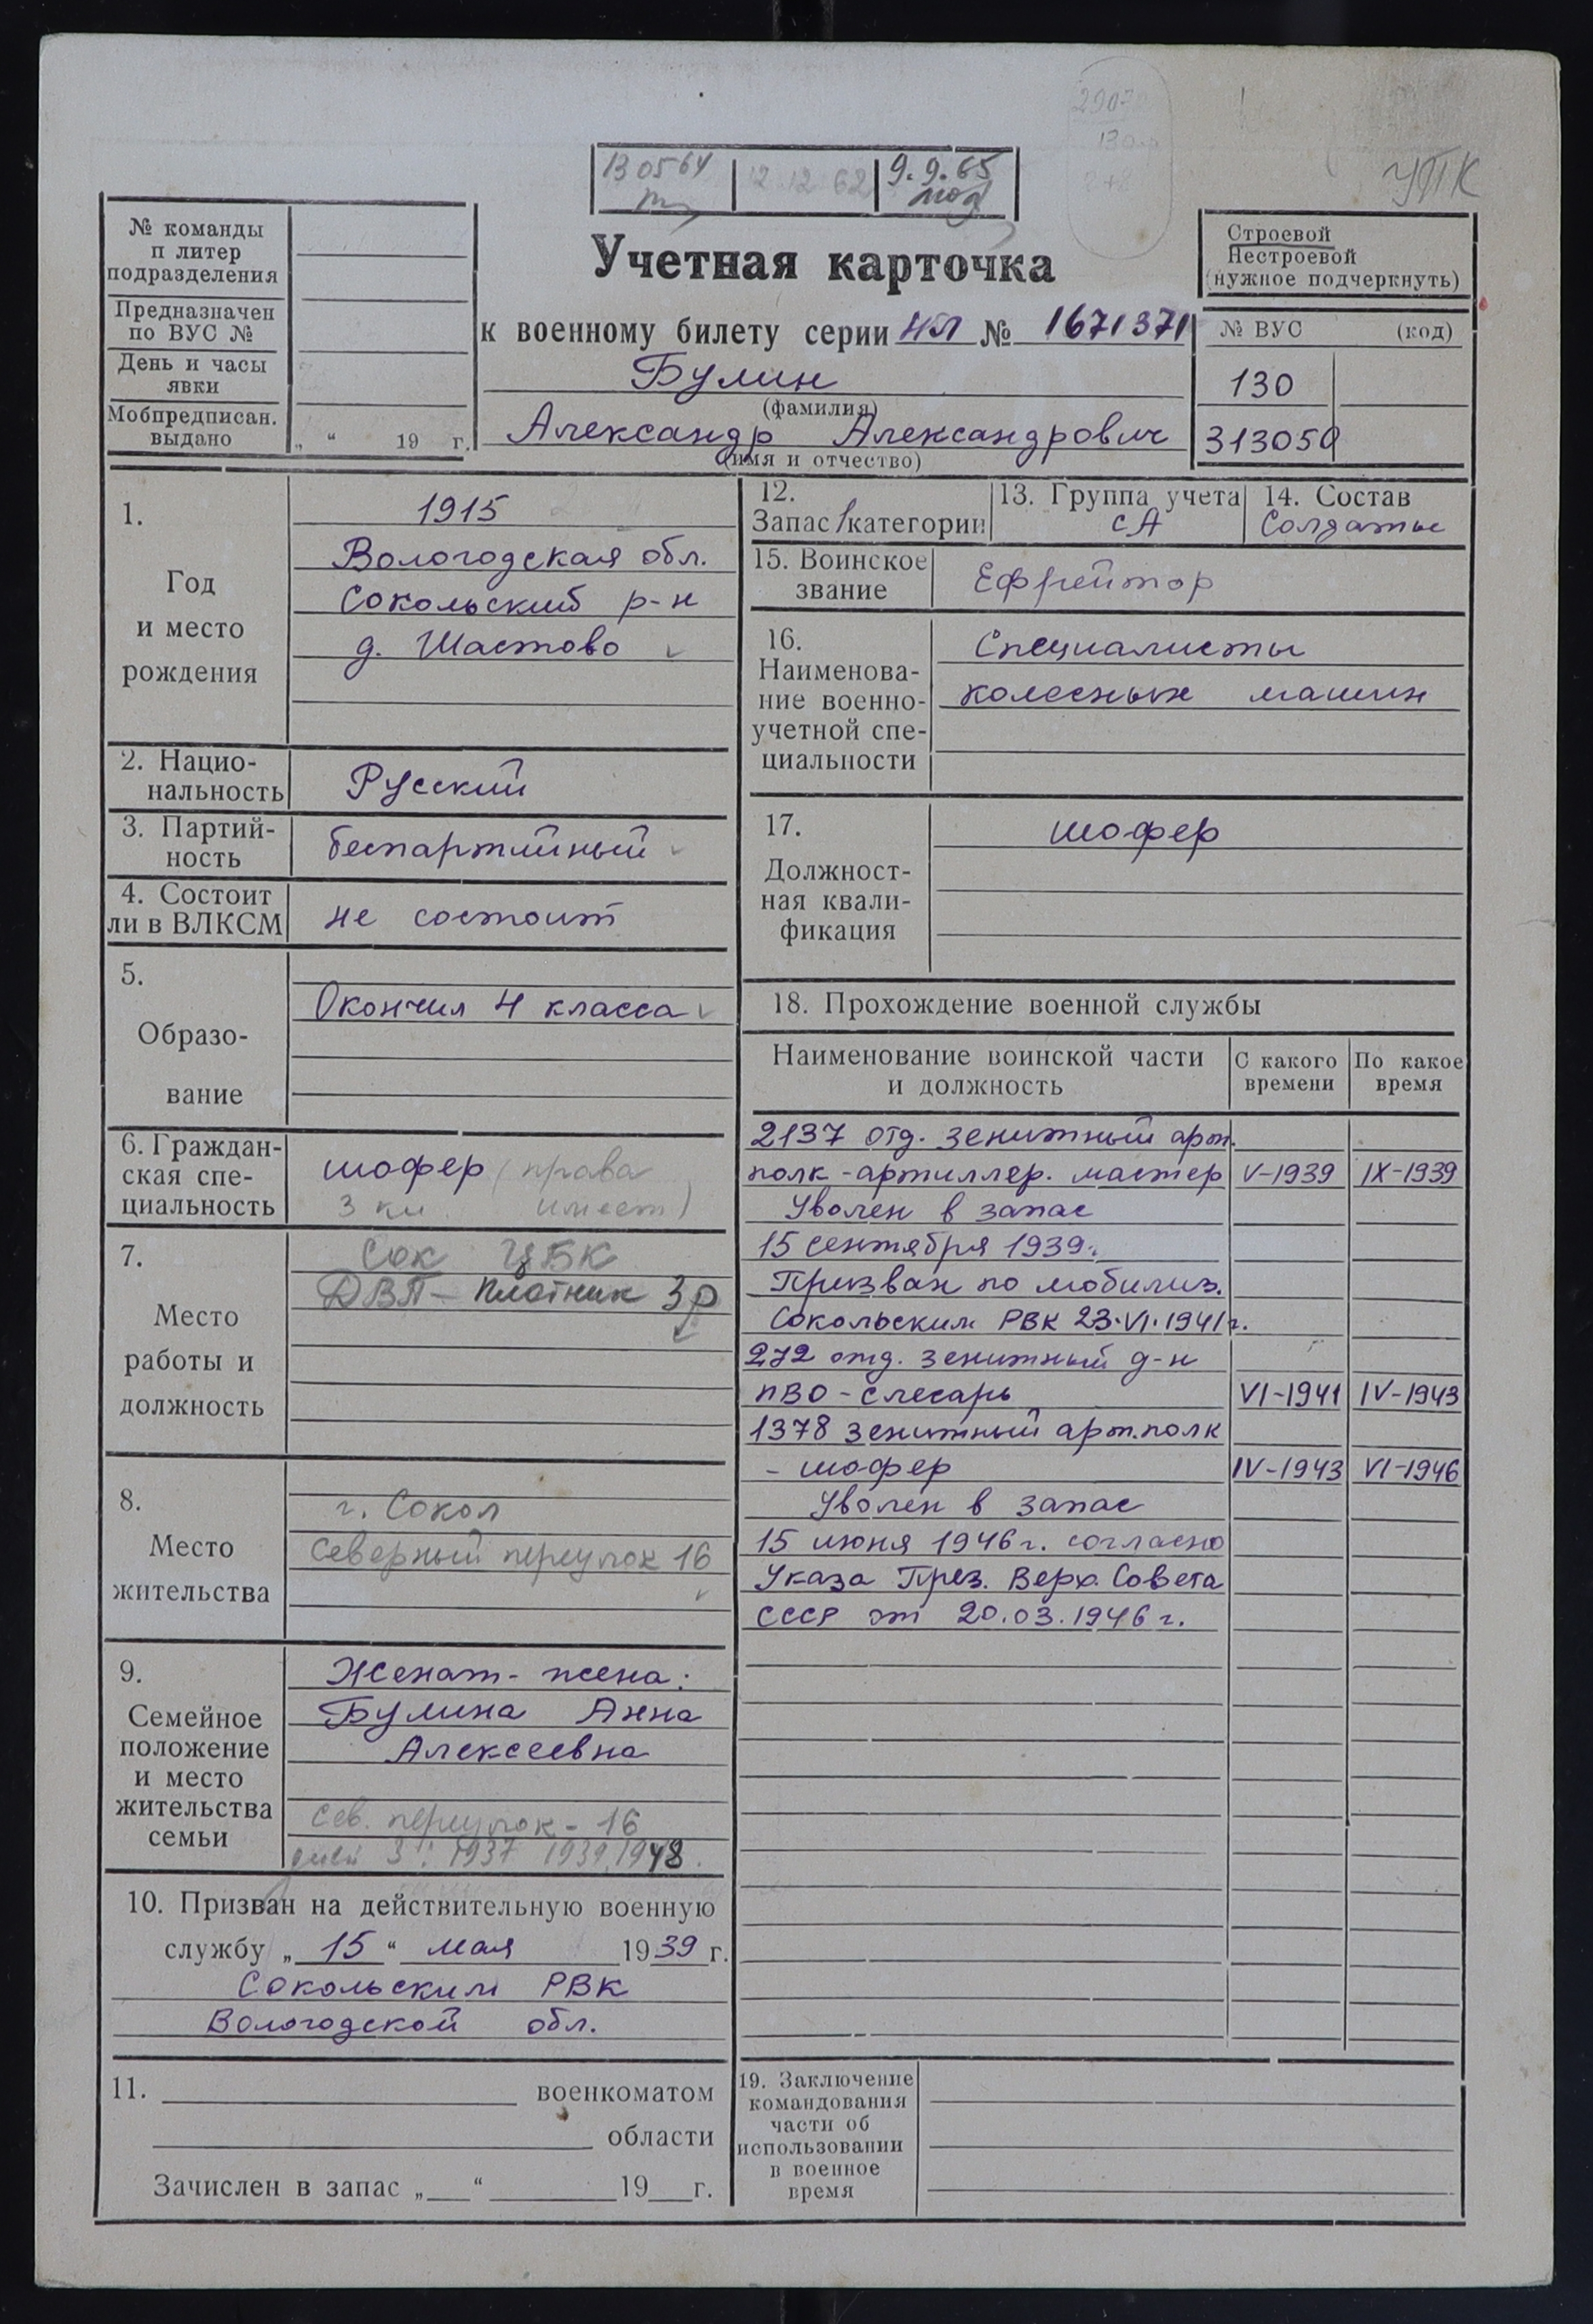 УПК
130564
12 12 62
9.9.65
№ команды
п литер
подразделения
Предназначен
по ВУС №
День и часы
явки
Мобпредписан.
выдано
„ “ 19 г.
Учетная карточка
к военному билету серии НЛ № 1671371
Булин
(фамилия)
Александр Александрович
(имя и отчество)
Строевой
Нестроевой
(нужное подчеркнуть)
№ ВУС (код)
130
313059
1.
Год
и место
рождения
1915
Вологодская обл.
Сокольский р-н
д. Шастово
2. Нацио-
нальность
Русский
3. Партий-
ность
беспартийный
4. Состоит
ли в ВЛКСМ
не состоит
5.
Образо-
вание
Окончил 4 класса
6. Граждан-
ская спе-
циальность
шофер (права
3 кл. имеет)
7.
Место
работы и
должность
Сок ЦБК
ДВП - плотник 3р
8.
Место
жительства
г. Сокол
Северный переулок 16
9.
Семейное
положение
и место
жительства
семьи
Женат - жена:
Булина Анна
Алексеевна
Сев. переулок - 16
детей 3: 1937 1939, 1948.
10. Призван на действительную военную
службу „ 15 “ мая 1939 г.
Сокольским РВК
Вологодской обл.
11. военкоматом
области
Зачислен в запас „ “ 19 г.
12.
Запас 1 категории
13. Группа учета
СА
14. Состав
Солдаты
15. Воинское
звание
Ефрейтор
16.
Наименова-
ние военно-
учетной спе-
циальности
Специалисты
колесных машин
17.
Должност-
ная квали-
фикация
шофер
18. Прохождение военной службы
Наименование воинской части
и должность
С какого
времени
По какое
время
2137 отд. зенитный арт.
полк - артиллер. мастер V-1939 IX-1939
Уволен в запас
15 сентября 1939г.
Призван по мобилиз.
Сокольским РВК 23.VI.1941г.
272 отд. зенитный д-н
ПВО - слесарь VI-1941 IV-1943
1378 зенитный арт.полк
- шофер IV-1943 VI-1946
Уволен в запас
15 июня 1946 г. согласно
Указа През. Верх. Совета
СССР от 20.03.1946 г.
19. Заключение
командования
части об
использовании
в военное
время